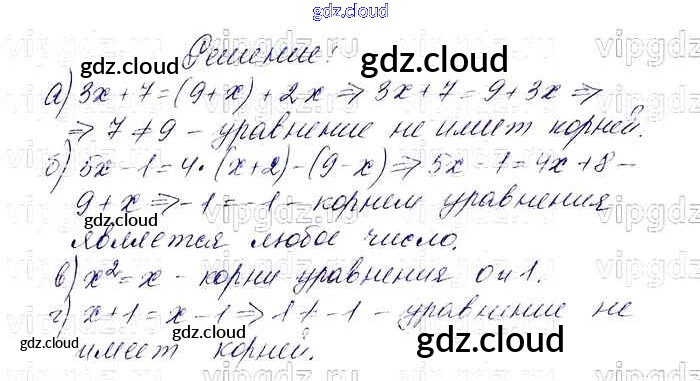 gdz.cloud
Решение:
а) 3x + 7 = (9 + x) + 2x ⇒ 3x + 7 = 9 + 3x ⇒
⇒ 7 ≠ 9 – уравнение не имеет корней.
б) 5x – 1 = 4 · (x + 2) – (9 – x) ⇒ 5x – 1 = 4x + 8 –
9 + x ⇒ –1 = –1 – корнем уравнения
является любое число.
в) x² = x – корни уравнения 0 и 1.
г) x + 1 = x – 1 ⇒ 1 ≠ –1 – уравнение не
имеет корней.
gdz.cloud
gdz.cloud
gdz.cloud
gdz.cloud
gdz.cloud
gdz.cloud
gdz.cloud